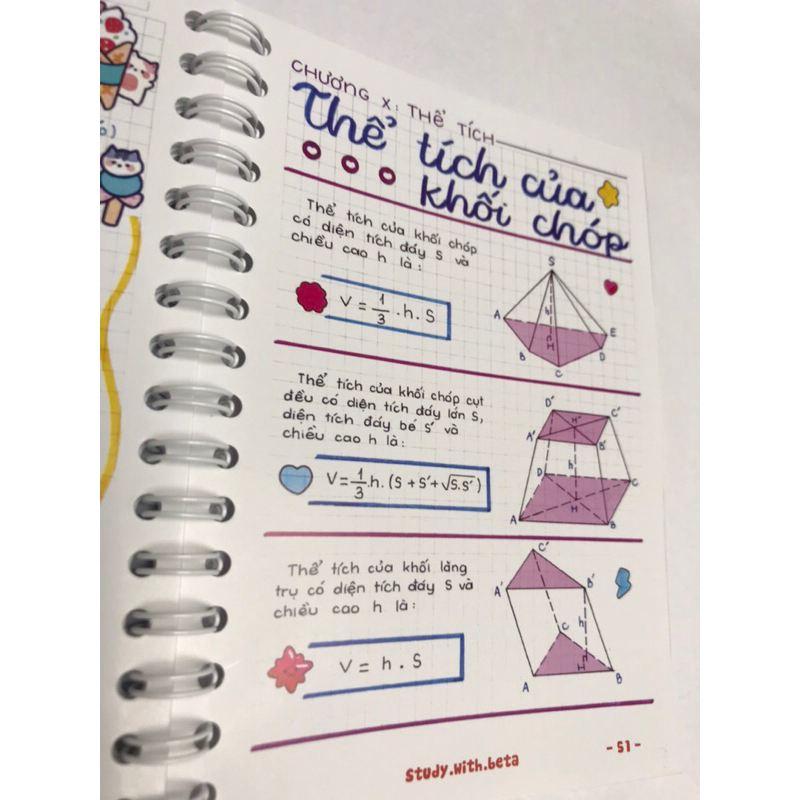 CHƯƠNG X: THỂ TÍCH
Thể tích của
khối chóp
Thể tích của khối chóp
có diện tích đáy S và
chiều cao h là:
V = 1/3 . h . S
S
A
B
C
D
E
h
H
Thể tích của khối chóp cụt
đều có diện tích đáy lớn S,
diện tích đáy bé S' và
chiều cao h là:
V = 1/3 .h. (S + S' + √S.S')
D'
C'
H'
A'
B'
h
D
C
H
A
B
Thể tích của khối lăng
trụ có diện tích đáy S và
chiều cao h là:
V = h . S
C'
A'
B'
h
C
H
A
B
Study.with.beta
- 51 -